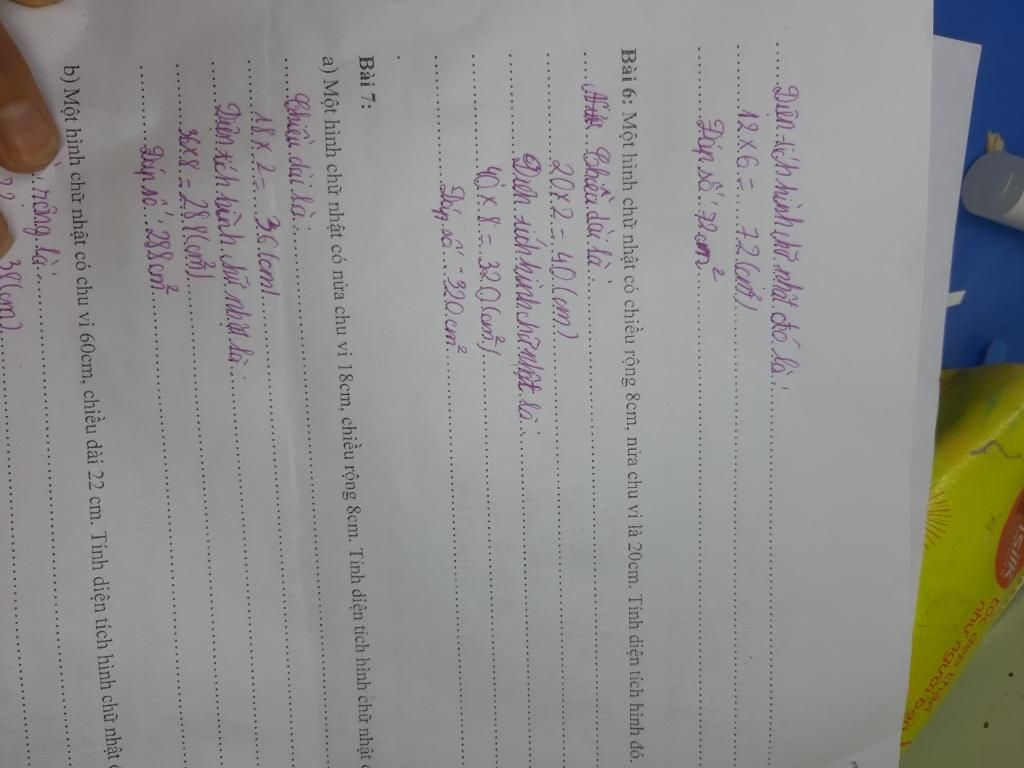 Diện tích hình chữ nhật đó là:
12 x 6 = 72 (cm²)
Đáp số: 72 cm²
Bài 6: Một hình chữ nhật có chiều rộng 8cm, nửa chu vi là 20cm. Tính diện tích hình đó.
Chiều dài là:
20 x 2 = 40 (cm)
Diện tích hình chữ nhật là:
40 x 8 = 320 (cm²)
Đáp số: 320 cm²
Bài 7.
a) Một hình chữ nhật có nửa chu vi 18cm, chiều rộng 8cm. Tính diện tích hình chữ nhật
Chiều dài là:
18 x 2 = 36 (cm)
Diện tích hình chữ nhật là:
36 x 8 = 288 (cm)
Đáp số: 288 cm²
b) Một hình chữ nhật có chu vi 60cm, chiều dài 22 cm. Tính diện tích hình chữ nhật
rộng là:
38 (cm)